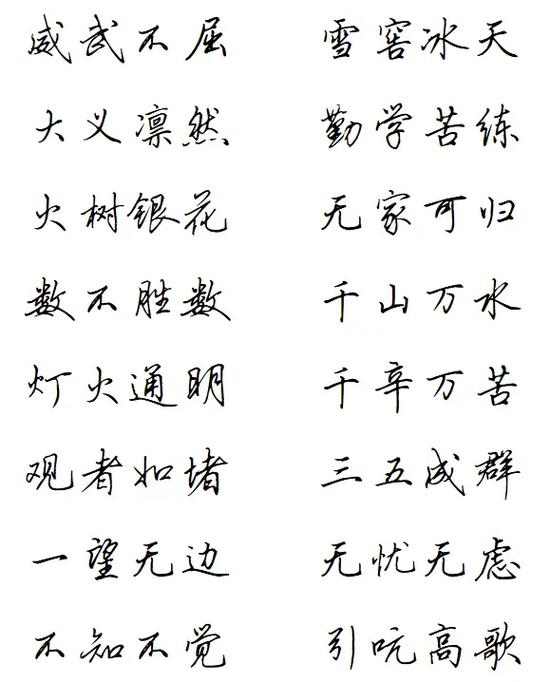 威武不屈 雪窖冰天
大义凛然 勤学苦练
火树银花 无家可归
数不胜数 千山万水
灯火通明 千辛万苦
观者如堵 三五成群
一望无边 无忧无虑
不知不觉 引吭高歌